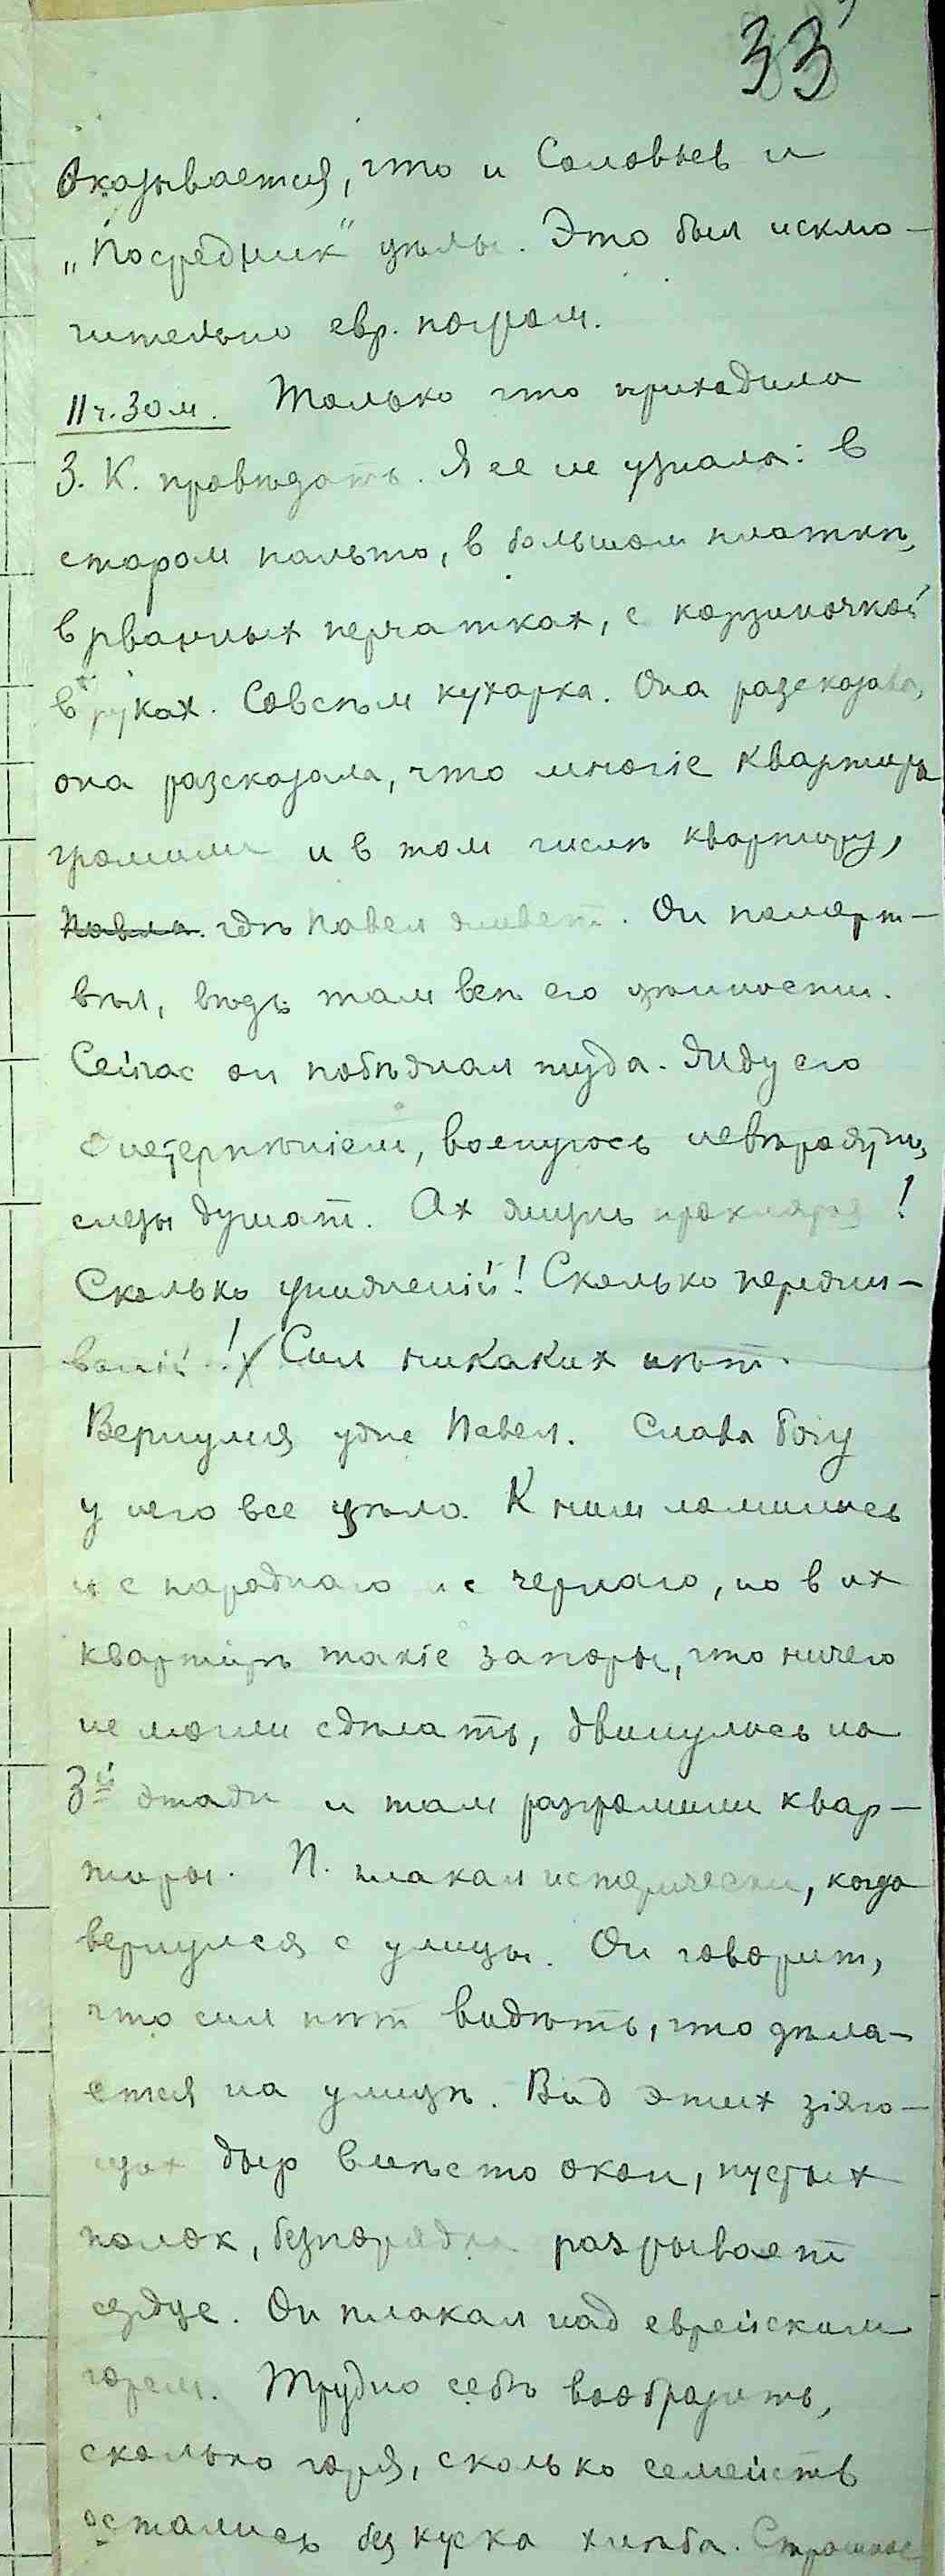 33
Оказывается, что и Соловьев и
„Посредник" цѣлы. Это был исклю-
чительно евр. погром.
11 ч. 30 м. Только что приходила
З. К. провѣдать. Я ее не узнала: в
старом пальто, в большом платкѣ,
в рванных перчатках, с корзиночкой
в руках. Совсѣм кухарка. Она разсказала,
она разсказала, что многіе квартиры
громили и в том числѣ квартиру,
Павла. гдѣ Павел живет. Он помертв-
вѣл, вѣдь там всѣ его цѣнности.
Сейчас он побѣжал туда. Жду его
с нетерпѣніем, волнуюсь невѣроятно,
слезы душат. Ах жизнь проклятая!
Сколько униженій! Сколько пережи-
ваній! Сил никаких нѣт.
Вернулся уже Павел. Слава Богу
у него все цѣло. К ним ломились
и с параднаго и с чернаго, но в их
квартирѣ такіе запоры, что ничего
не могли сдѣлать, двинулись на
3й этаж и там разгромили квар-
тиры. П. плакал истерически, когда
вернулся с улицы. Он говорит,
что сил нѣт видѣть, что дѣла-
ется на улицѣ. Вид этих зіяю-
щих дыр вмѣсто окон, пустых
полок, безпорядка разрывает
сердце. Он плакал над еврейским
горем. Трудно себѣ вообразить,
сколько горя, сколько семейств
остались без куска хлѣба. Страшное